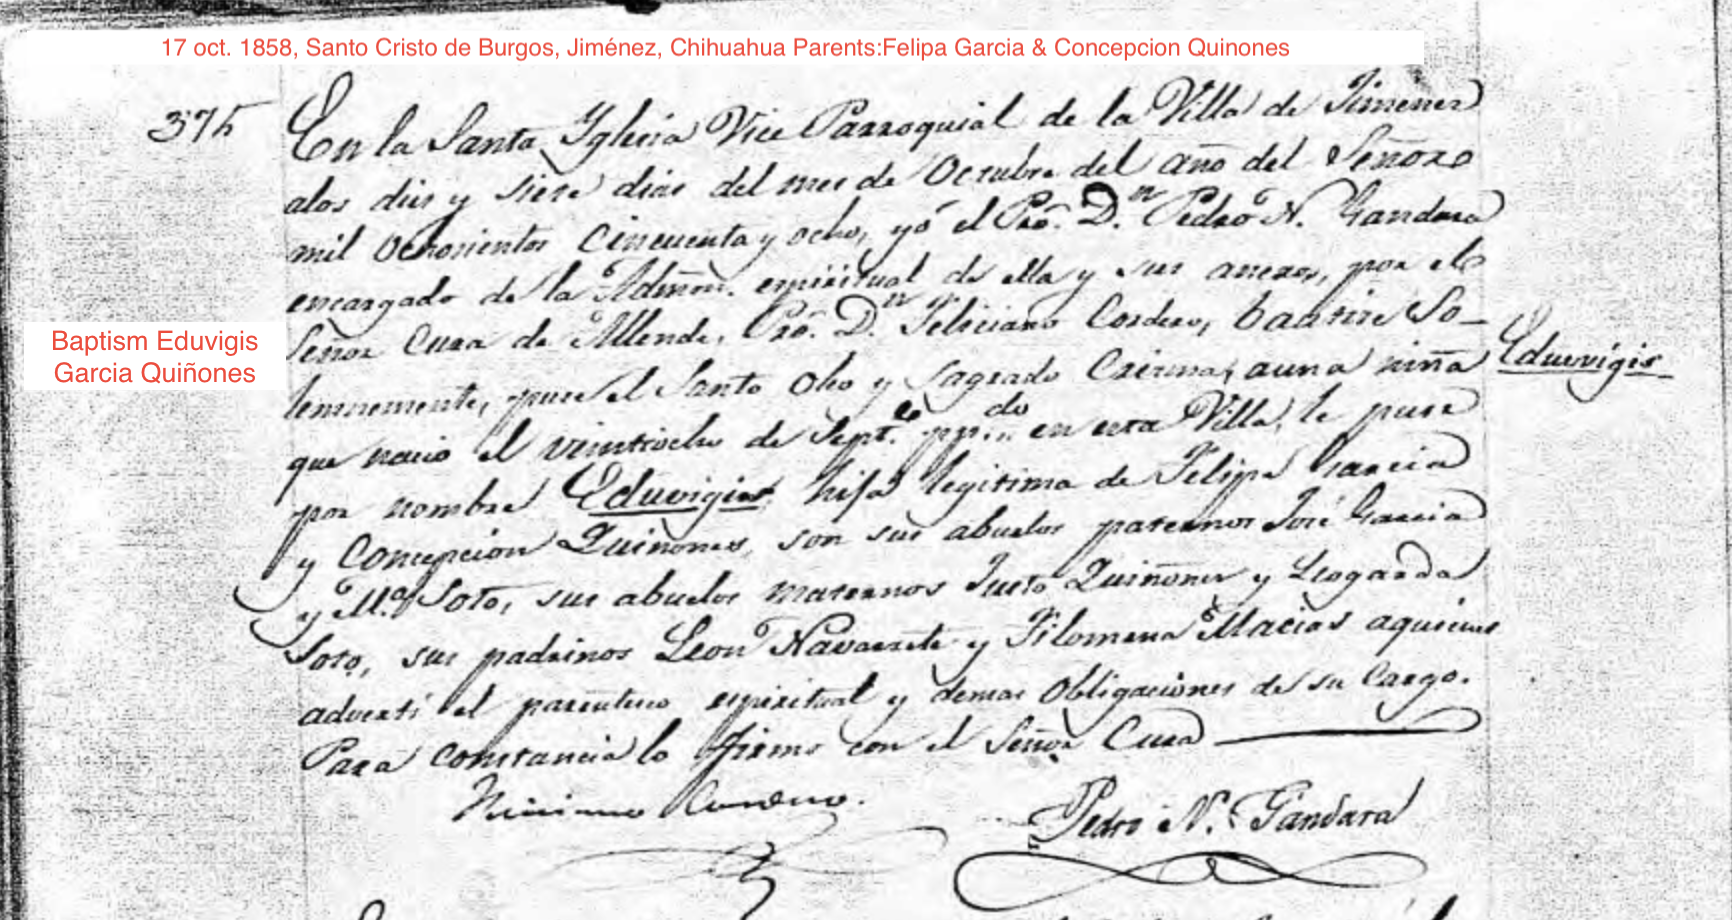 17 oct. 1858, Santo Cristo de Burgos, Jiménez, Chihuahua Parents:Felipa Garcia & Concepcion Quinones
375
En la Santa Yglesia Vice Parroquial de la Villa de Jimenez
alos dies y siete dias del mes de Octubre del año del Señor
mil ochosientos Cincuenta y ocho, yó el Pro. D.n Pedro N. Gandara
encargado de la Admon. espiritual de ella y sus anexos, por el
Señor Cura de Allende, Pro. D.n Feliciano Cordero, bautise So-
Baptism Eduvigis
Garcia Quiñones
lemnemente, puse el Santo Oleo y Sagrado Crisma, auna niña
Eduvigis
que nacio el veintiocho de Sept.e pp.do en esta Villa, le puse
por nombre Eduvigis, hija legitima de Felipe Garcia
y Concepcion Quiñones, son sus abuelos paternos José Garcia
y M.a Soto, sus abuelos maternos Justo Quiñones y Leogarda
Soto, sus padrinos Leon Navarrete y Filomena Macias aquienes
adverti el parentesco espiritual y demas Obligaciones de su Cargo.
Para constancia lo firmo con el Señor Cura
Pedro N. Gandara